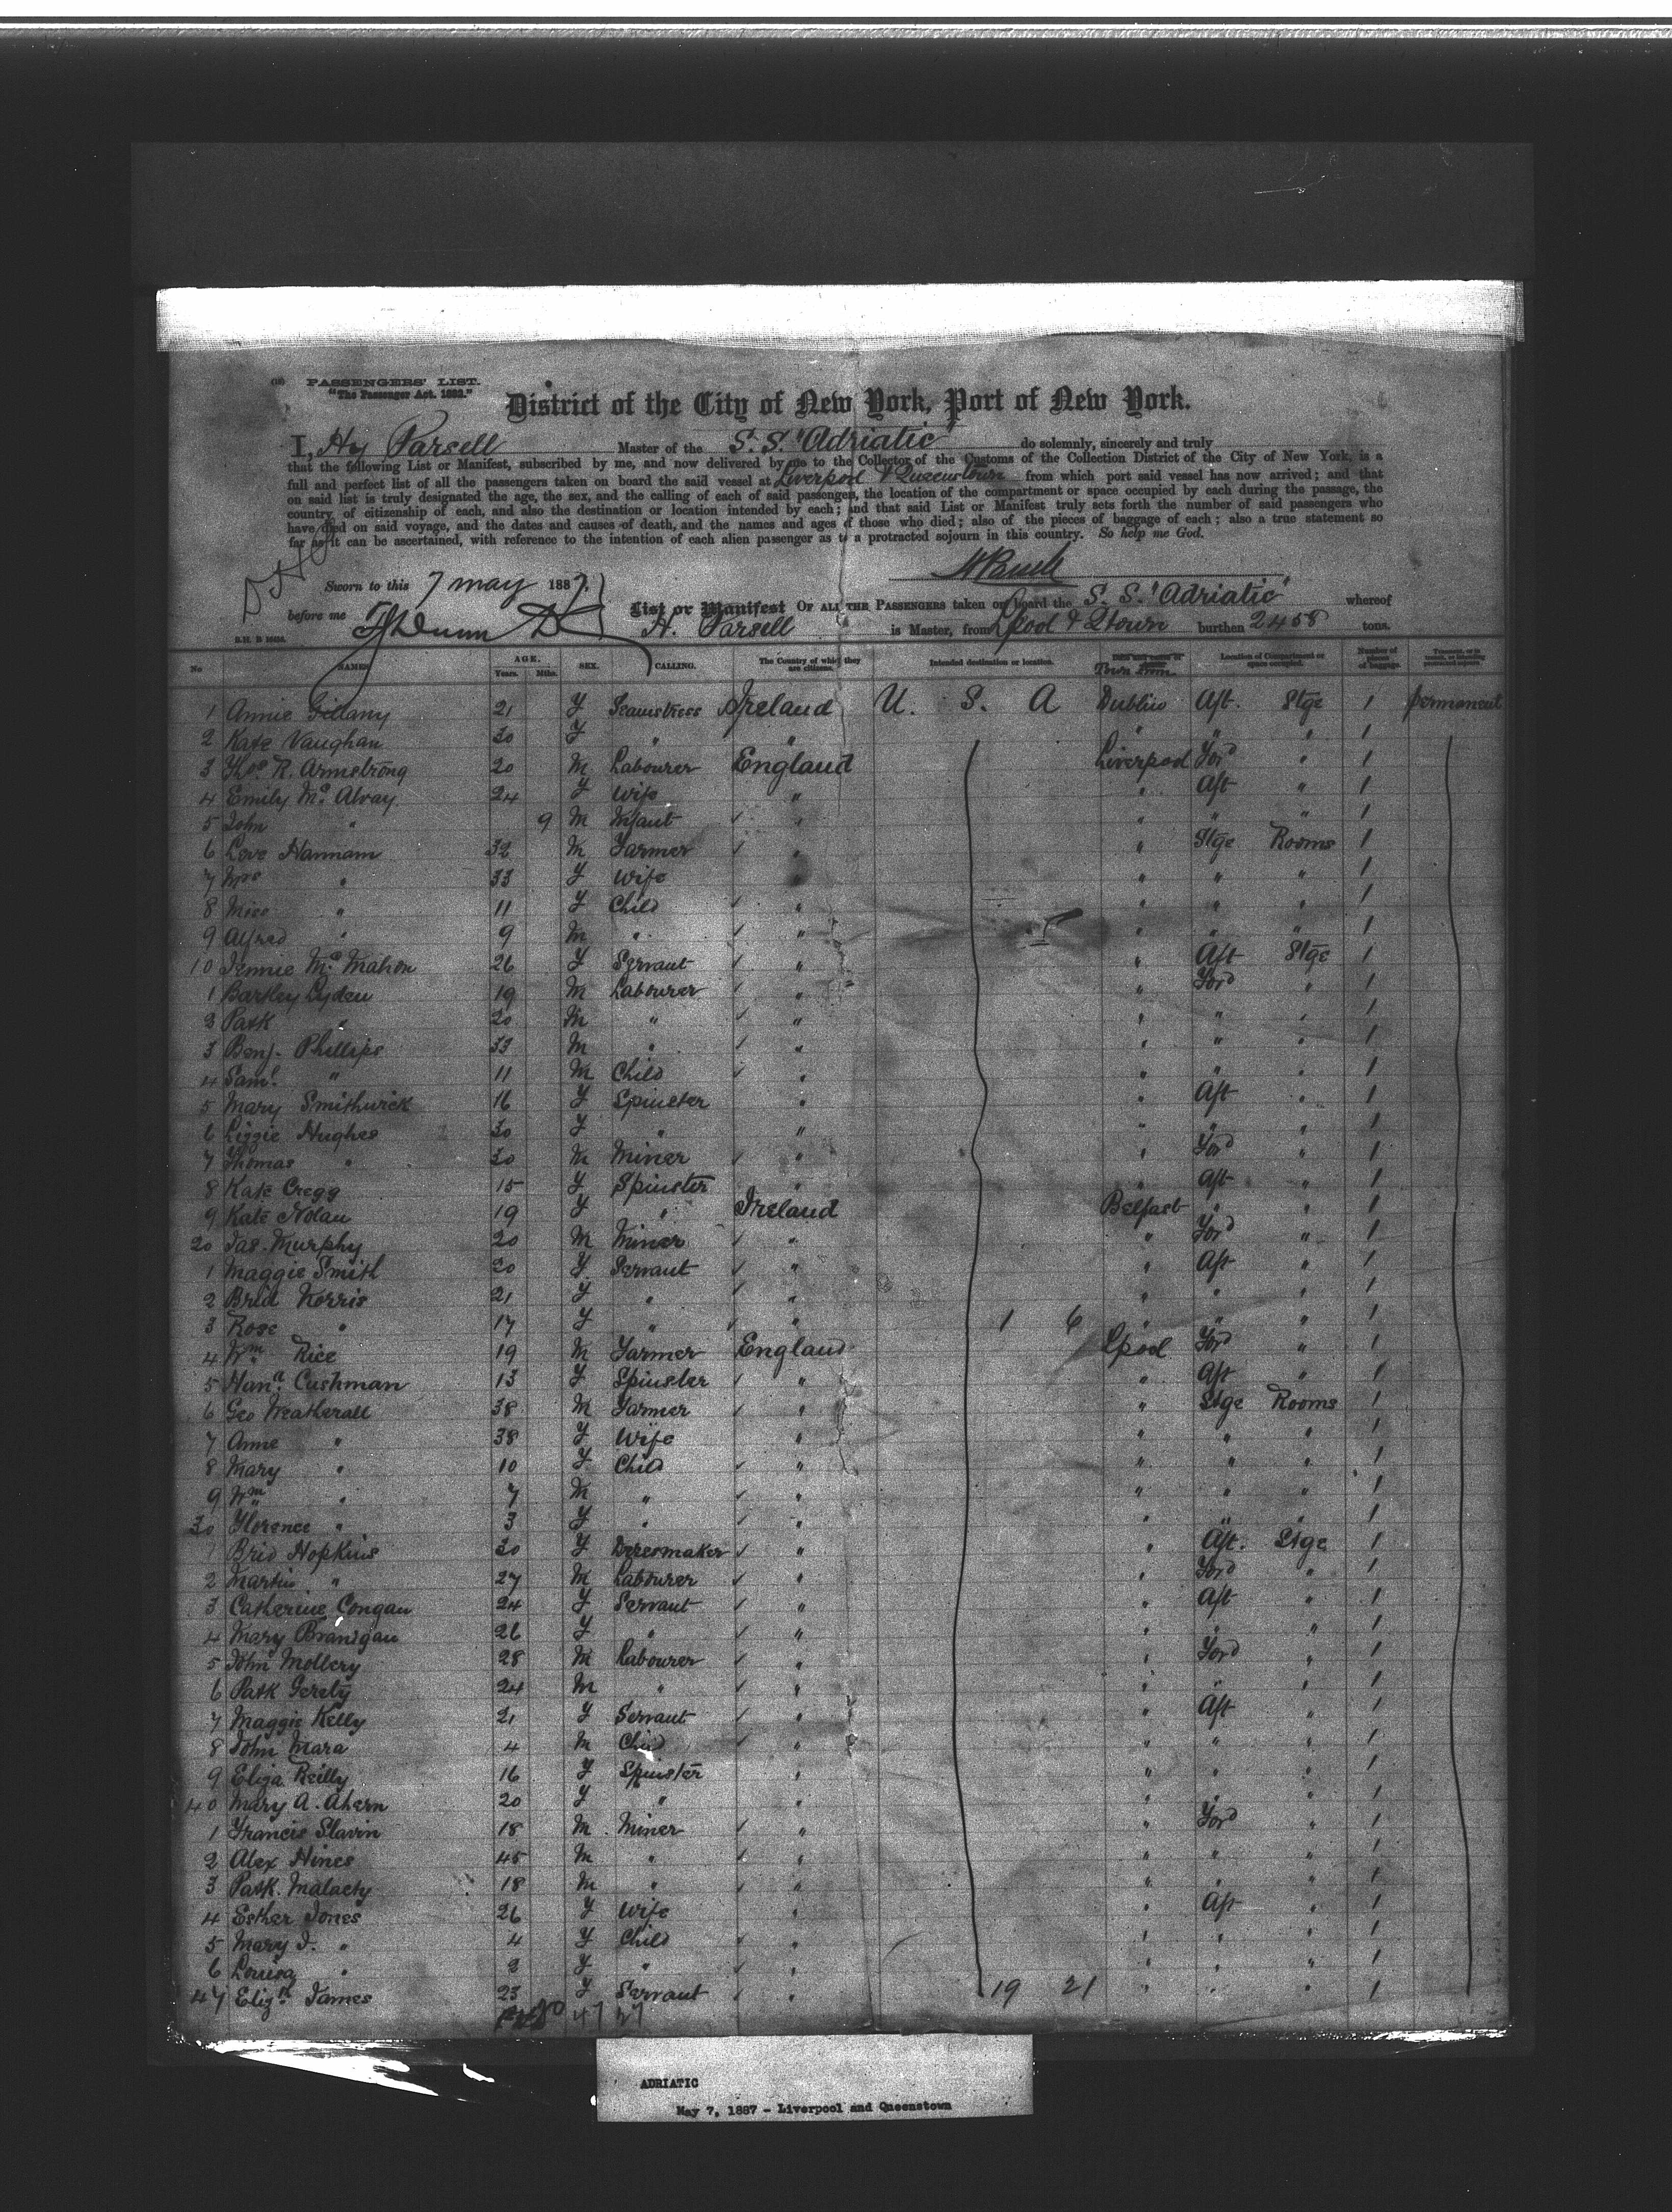 PASSENGERS' LIST.
"The Passenger Act. 1882."
District of the City of New York, Port of New York.
I, Hy Parsell Master of the S.S. "Adriatic" do solemnly, sincerely and truly
that the following List or Manifest, subscribed by me, and now delivered by me to the Collector of the Customs of the Collection District of the City of New York, is a
full and perfect list of all the passengers taken on board the said vessel at Liverpool & Queenstown from which port said vessel has now arrived; and that
on said list is truly designated the age, the sex, and the calling of each of said passengers, the location of the compartment or space occupied by each during the passage, the
country of citizenship of each, and also the destination or location intended by each; and that said List or Manifest truly sets forth the number of said passengers who
have died on said voyage, and the dates and causes of death, and the names and ages of those who died; also of the pieces of baggage of each; also a true statement so
far as it can be ascertained, with reference to the intention of each alien passenger as to a protracted sojourn in this country. So help me God.
Sworn to this 7 May 1887.
before me
List or Manifest OF ALL THE PASSENGERS taken on board the S.S. "Adriatic" whereof
H. Parsell is Master, from Lpool & Qtown burthen 2458 tons.
No NAMES AGE. Years. Mths. SEX. CALLING. The Country of which they are citizens. Intended destination or location. Town From. Location of Compartment or space occupied. Number of pieces of baggage.
1 Annie Gillany 21 F Seamstress Ireland U. S. A Dublin Aft. Stge 1 permanent
2 Kate Vaughan 30 F " " " " " 1
3 Thos R. Armstrong 20 M Labourer England Liverpool Ford " 1
4 Emily Mc Alvay 24 F Wife " " Aft " 1
5 John " 9 M Infant " " " " 1
6 Leve Hannam 32 M Farmer " " Stge Rooms 1
7 Mrs " 33 F Wife " " " " 1
8 Miss " 11 F Child " " " " 1
9 Alfred " 9 M " " " " " 1
10 Jennie Mc Mahon 26 F Servant " " Aft Stge 1
1 Barkley Lyden 19 M Labourer " " Ford " 1
2 Patk " 20 M " " " " " 1
3 Benj. Phillips 33 M " " " " " 1
4 Saml " 11 M Child " " " " 1
5 Mary Smithwick 16 F Spinster " " Aft " 1
6 Lizzie Hughes 30 F " " " " " 1
7 Thomas " 30 M Miner " " Ford " 1
8 Kate Cregg 15 F Spinster " " Aft " 1
9 Kate Nolan 19 F " Ireland Belfast " " 1
20 Jas. Murphy 20 M Miner " " Ford " 1
1 Maggie Smith 20 F Servant " " Aft " 1
2 Brid Norris 21 F " " " " " 1
3 Rose " 17 F " " 1 6 " " " 1
4 Wm Rice 19 M Farmer England Lpool Ford " 1
5 Hana Cushman 13 F Spinster " " Aft " 1
6 Geo Weatherall 38 M Farmer " " Stge Rooms 1
7 Anne " 38 F Wife " " " " 1
8 Mary " 10 F Child " " " " 1
9 Wm " 7 M " " " " " 1
30 Florence " 3 F " " " " " 1
1 Brid Hopkins 30 F Dressmaker " " Aft. Stge 1
2 Martin " 27 M Labourer " " Ford " 1
3 Catherine Congan 24 F Servant " " Aft " 1
4 Mary Branigan 26 F " " " " " 1
5 John Mollery 28 M Labourer " " Ford " 1
6 Patk Gerety 24 M " " " " " 1
7 Maggie Kelly 21 F Servant " " Aft " 1
8 John Mara 4 M Child " " " " 1
9 Eliza Reilly 16 F Spinster " " " " 1
40 Mary A. Ahern 20 F " " " " " 1
1 Francis Slavin 18 M Miner " " Ford " 1
2 Alex Hines 45 M " " " " " 1
3 Patk. Malacty 18 M " " " " " 1
4 Esther Jones 26 F Wife " " Aft " 1
5 Mary J. " 4 F Child " " " " 1
6 Louisa " 2 F " " " " " 1
47 Elizh James 23 F Servant " 19 21 " " " 1
47 27
ADRIATIC
May 7, 1887 - Liverpool and Queenstown